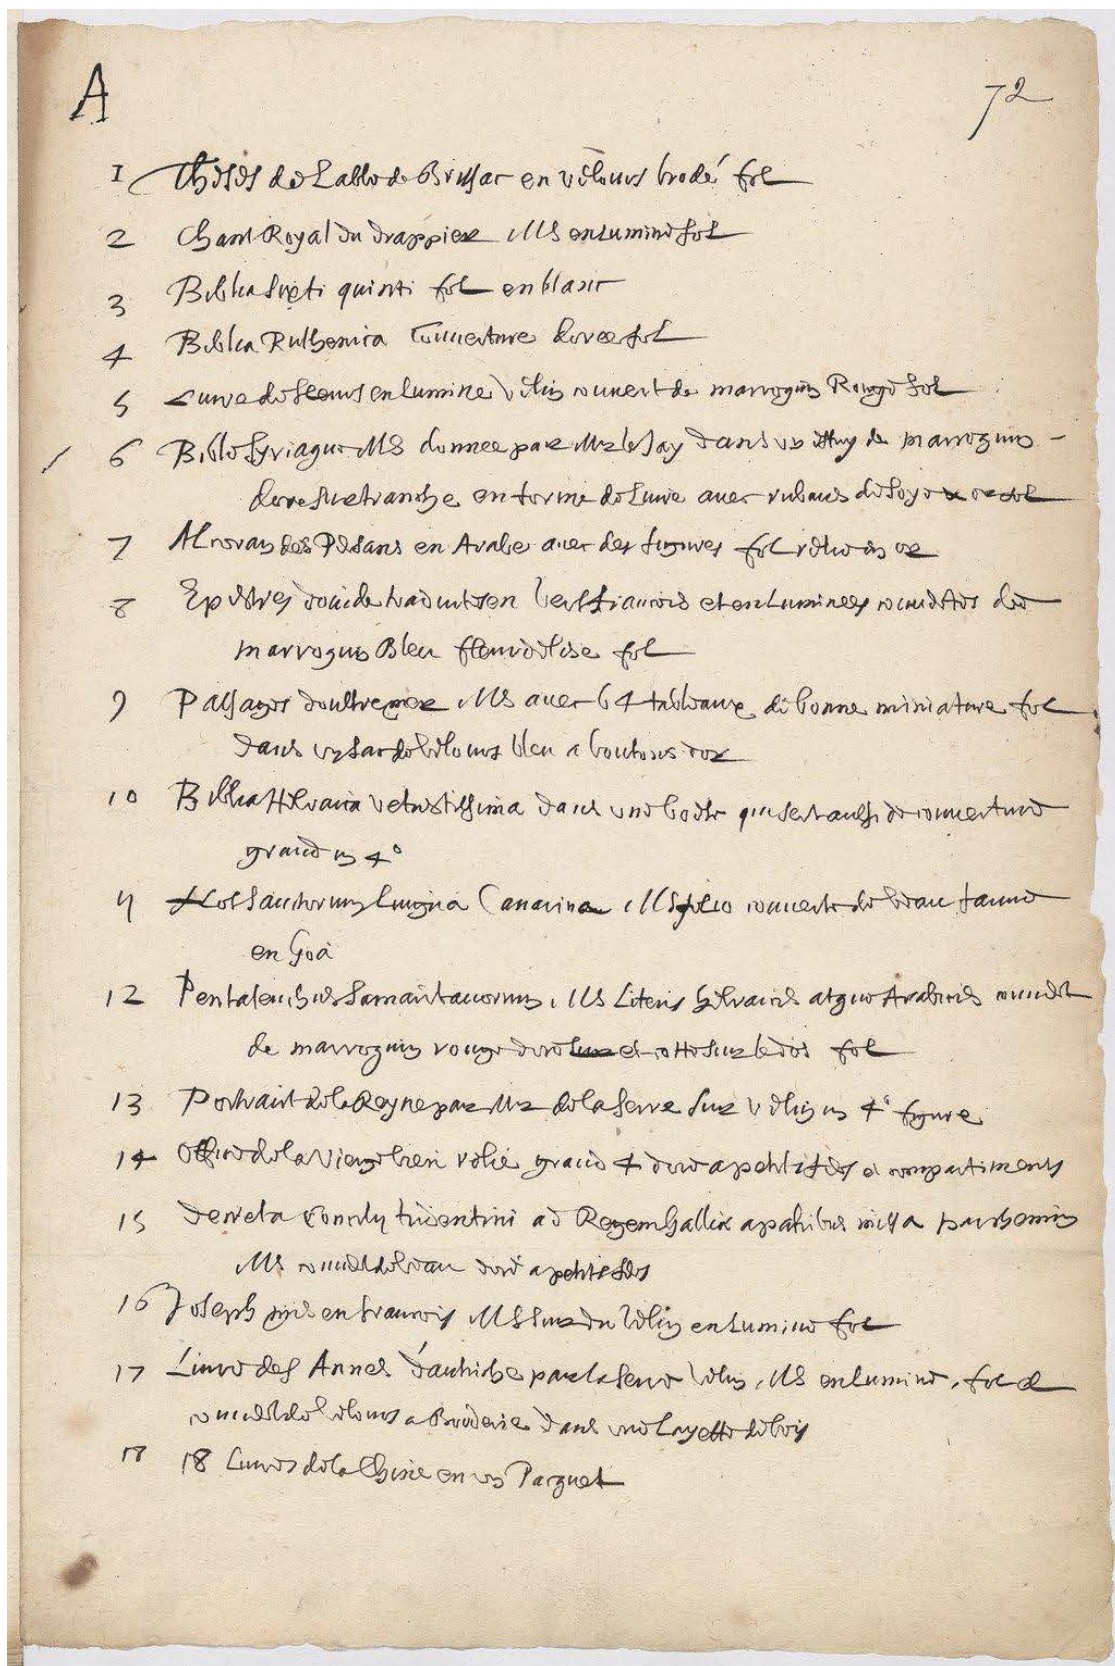 A
72
1 Theses de Labbe de Brissac en velours brodé fol
2 Chant Royal du drappier MS enluminé fol
3 Biblia Sixti quinti fol en blanc
4 Biblia Ruthenica Couverture doree fol
5 Livre de fleurs enluminé velin couvert de marroquin Rouge fol
6 Bible Syriaque MS donnee par Mr le Jay dans un estuy de marroquin
dore sur tranche en forme de livre avec rubans de soye
7 Alcoran des Persans en Arabe avec des figures fol relie en or
8 Epistres dovide traduites en vers francois et enluminees couvertes de
marroquin Bleu fleurdelise fol
9 Passages doultremer MS avec 64 tableaux de bonne miniature fol
dans un sac de velours bleu a boutons dor
10 Biblia Hebraica vetustissima dans une boete qui sert aussi de couverture
grand in 4°
11 Flos Sanctorum lingua Canarina MS folio couvert de veau fauve
en Goa
12 Pentateuchus Samaritanorum MS Literis hebraicis atque Arabicis couvert
de marroquin rouge doré et cotte sur le dos fol
13 Portrait de la Reyne par Mr de la Serre sur velin in 4° figure
14 Office de la Vierge bien relié grand 4 doré a petits fers a compartiments
15 Decreta Concily tridentini ad Regem Galliæ a patribus missa parchemin
MS couvert de veau doré a petits fers
16 Joseph mis en francois MS sur du velin enluminé fol
17 Livre des Annes dautriche par la Serre velin MS enluminé, fol
couvert de velours a Broderie dans une Layette de bois
18 18 Livres de la Chine en un Pacquet